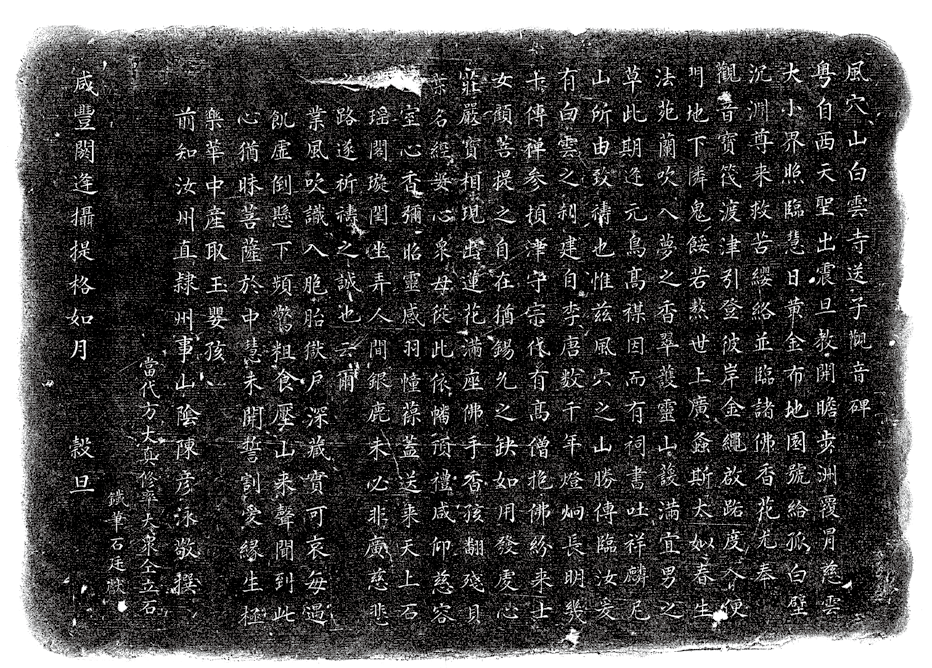 風穴山白雲寺送子觀音碑
粵自西天聖出震旦教開瞻步洲覆冒慈雲
大小界照臨慧日黄金布地園號給孤白璧
沉淵尊来救苦纓絡並臨諸佛香花尤奉
觀音寶筏渡津引登彼岸金繩啟路度入便
門地下憐鬼餒若熬世上廣螽斯太如春生
法苑蘭吹入夢之香翠護靈山護滿宜男之
草此期逢元鳥高禖因而有祠書吐祥麟尼
山所由致禱也惟兹風穴之山勝傳臨汝爰
有白雲之刹建自李唐数千年燈炯長明幾
十傳禅参頓津守宗代有高僧拖佛紛来士
女願菩提之自在猶錫允之缺如用發慶心
莊嚴寶相現出蓮花滿座佛手香孩翻殘貝
葉名經婆心衆母從此依幡頂禮咸仰慈容
室心香彌昭靈感羽幢葆蓋送来天上石
瑶閣璇閨坐弄人間銀鹿未必非廣慈悲
路遂祈禱之誠也云爾
業風吹識入胞胎獄户深藏實可哀每遇
飢虚倒懸下頻驚粗食壓山来聲聞到此
心猶昧菩薩於中慧未開誓割愛緣生極
樂華中産取玉嬰孩
前知汝州直隸州事山陰陳彦泳敬撰
當代方丈真修率大衆仝立石
鐵筆石廷獻
咸豐閼逢攝提格如月 穀旦